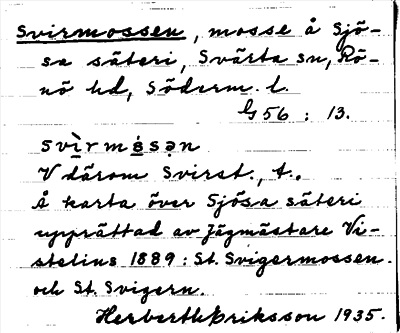 Svirmossen, mosse å Sjö-
sa säteri, Svärta sn, Rö-
nö hd, Söderm. l.
G 56 : 13.
svìrmåsən
V därom Svirst., t..
Å karta över Sjösa säteri
upprättad av Jägmästare Vi-
stelius 1889: St. Svigermossen.
och St. Svigern.
Herberth Eriksson 1935.